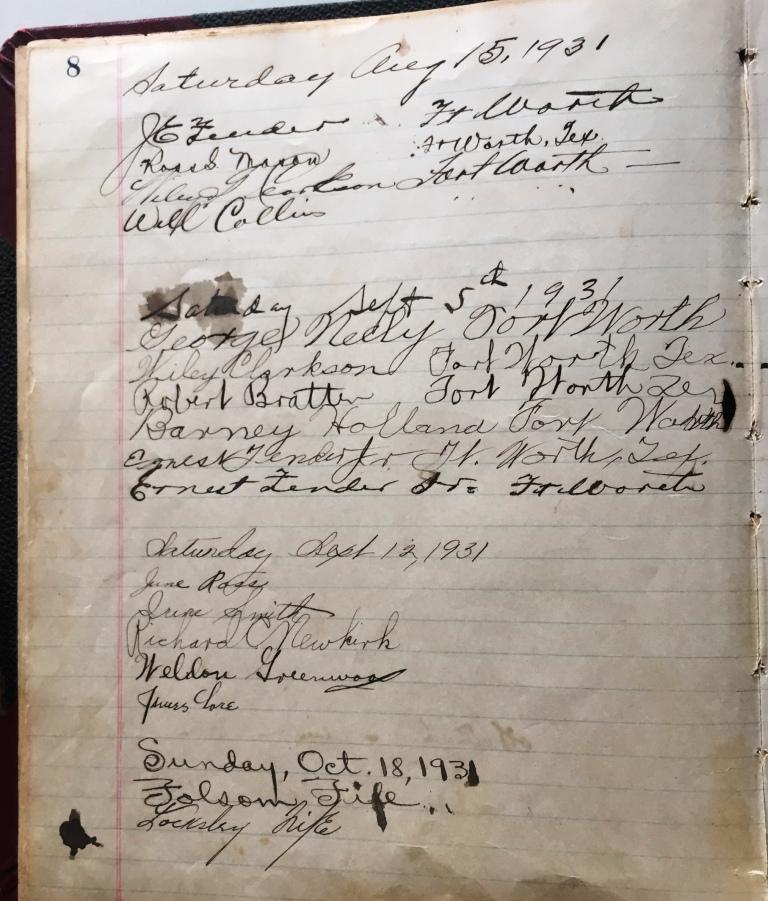 8
Saturday Aug 15, 1931
J E Fender Ft Worth
Ross S. Mason Ft Worth, Tex
Wiley G. Clarkson Fort Worth —
Will Collins
Saturday Sept 5th 1931
George Neely Fort Worth
Wiley Clarkson Fort Worth Tex.
Robert Bratten Fort Worth Tex
Barney Holland Fort Worth
Ernest Fender Jr Ft. Worth, Tex.
Ernest Fender Sr. Ft Worth
Saturday Sept 12, 1931
June Ross
Irene Smith
Richard Newkirk
Weldon Greenwood
James Lore
Sunday, Oct. 18, 1931
Folsom Fife
Locksley Fife